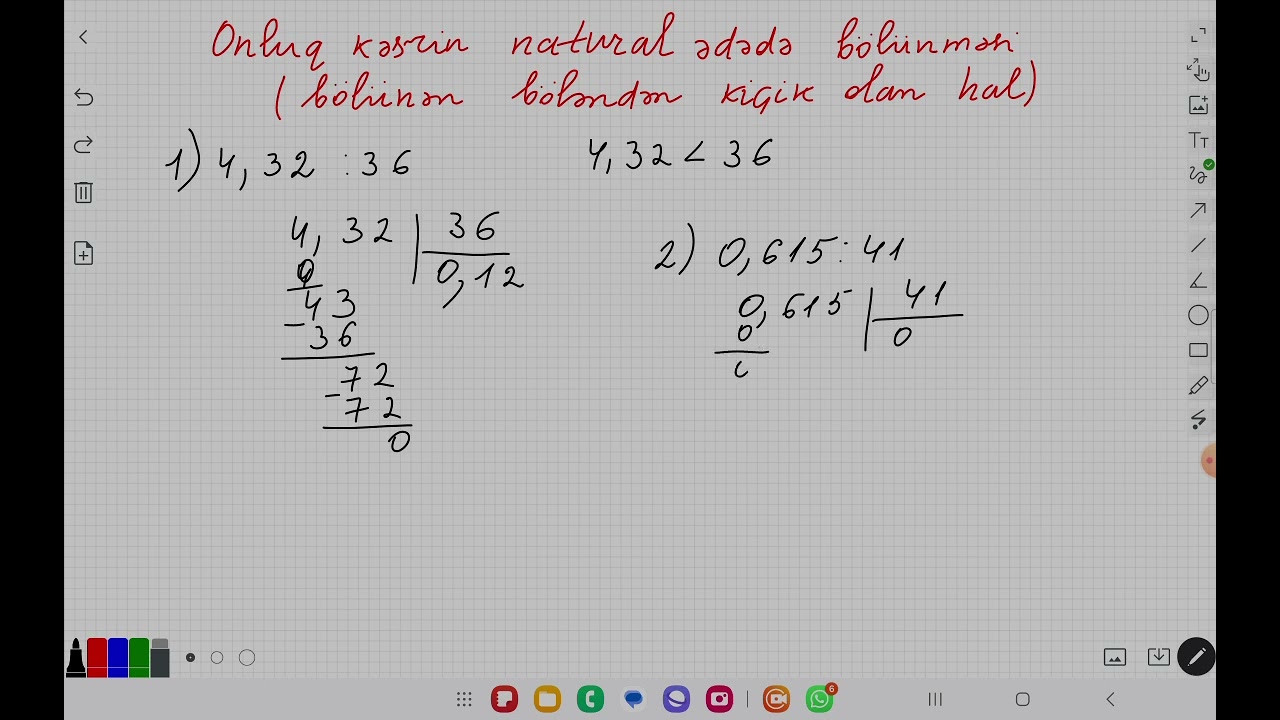 Onluq kəsrin natural ədədə bölünməsi
(bölünən böləndən kiçik olan hal)
1) 4,32 : 36
4,32 < 36
4,32 36
0 0,12
43
- 36
72
- 72
0
2) 0,615 : 41
0,615 41
0 0
0
Tт
6